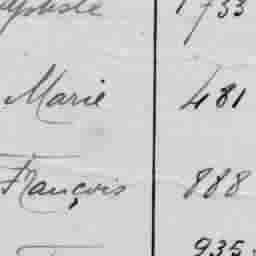 1733
Marie 481
François 888
935